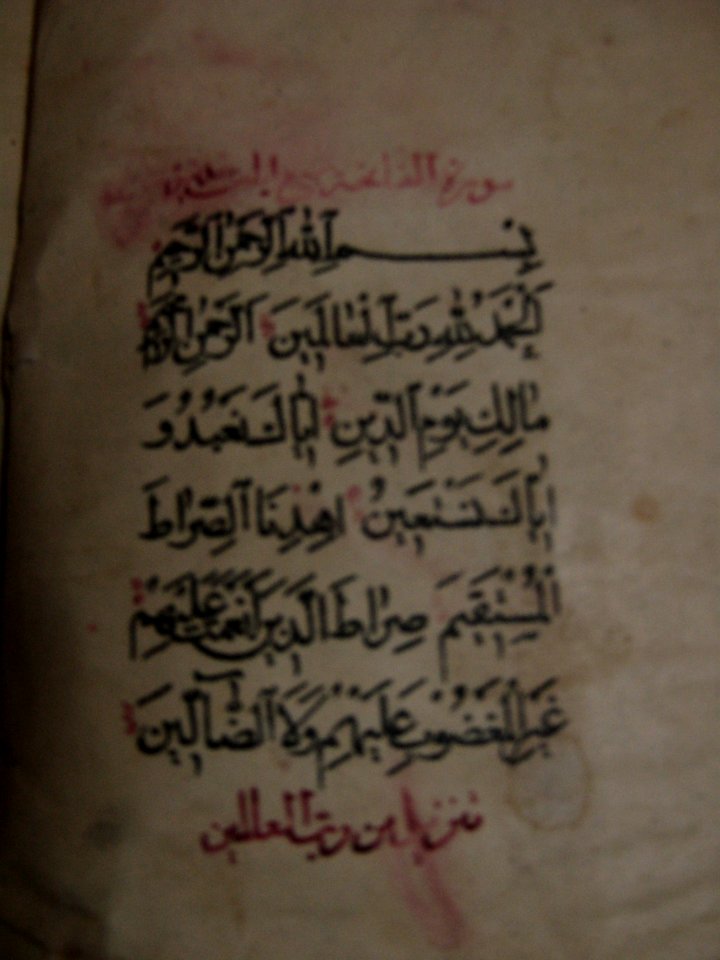 سورة الفاتحة سبع
بِسْمِ ٱللَّهِ ٱلرَّحْمٰنِ ٱلرَّحِيمِ
اَلْحَمْدُ لِلّٰهِ رَبِّ الْعَالَمِينَ اَلرَّحْمٰنِ الرَّحِيمِ
مَالِكِ يَوْمِ ٱلدِّينِ اِيَّاكَ نَعْبُدُ وَ
اِيَّاكَ نَسْتَعِينُ اِهْدِنَا ٱلصِّرَاطَ
الْمُسْتَقِيمَ صِرَاطَ الَّذِينَ اَنْعَمْتَ عَلَيْهِمْ
غَيْرِ الْمَغْضُوبِ عَلَيْهِمْ وَلَا ٱلضَّآلِّينَ
تنزيل من رب العالمين